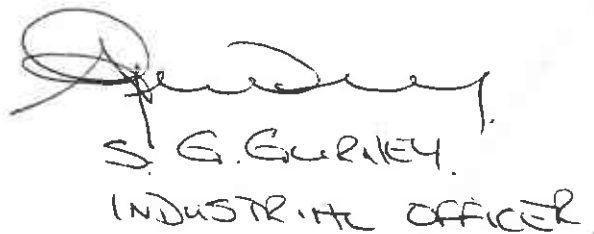 S. G. GURNEY.
INDUSTRIAL OFFICER